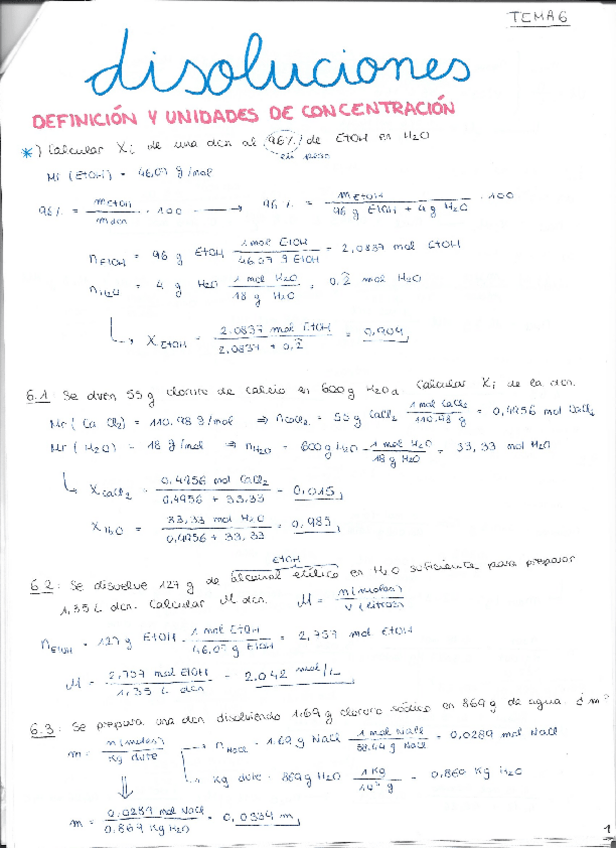 TEMA 6
disoluciones
DEFINICIÓN Y UNIDADES DE CONCENTRACIÓN
*) Calcular Xi de una dcn al 96% de EtOH en H2O
en peso
Mr (EtOH) = 46,07 g/mol
96% = mEtOH / mdcn · 100 → 96% = mEtOH / 96 g EtOH + 4 g H2O · 100
nEtOH = 96 g EtOH 1 mol EtOH / 46.07 g EtOH = 2,0837 mol EtOH
nH2O = 4 g H2O 1 mol H2O / 18 g H2O = 0.2 mol H2O
XEtOH = 2.0837 mol EtOH / 2.0837 + 0,2 = 0,904
6.1 Se dven 55 g cloruro de calcio en 600 g H2O. Calcular Xi de la dcn.
Mr (CaCl2) = 110.98 g/mol ⇒ nCaCl2 = 55 g CaCl2 1 mol CaCl2 / 110,98 g = 0,4956 mol CaCl2
Mr (H2O) = 18 g/mol ⇒ nH2O = 600 g H2O 1 mol H2O / 18 g H2O = 33,33 mol H2O
XCaCl2 = 0,4956 mol CaCl2 / 0,4956 + 33,33 = 0,015
XH2O = 33,33 mol H2O / 0,4956 + 33,33 = 0,985
EtOH
6.2: Se disuelve 127 g de alcohol etílico en H2O suficiente para preparar
1,35 L dcn. Calcular M dcn. M = n(moles) / V(litros)
nEtOH = 127 g EtOH · 1 mol EtOH / 46,07 g EtOH = 2,757 mol EtOH
M = 2,757 mol EtOH / 1,35 L dcn = 2.042 mol/L
6.3: Se prepara una dcn disolviendo 1.69 g cloruro sódico en 869 g de agua ¿m?
m = n(moles) / Kg dvte → nNaCl = 1.69 g NaCl 1 mol NaCl / 58.44 g NaCl = 0,0289 mol NaCl
→ Kg dvte = 869 g H2O 1 Kg / 10³ g = 0.869 Kg H2O
m = 0,0289 mol NaCl / 0.869 Kg H2O = 0,0334 m
1